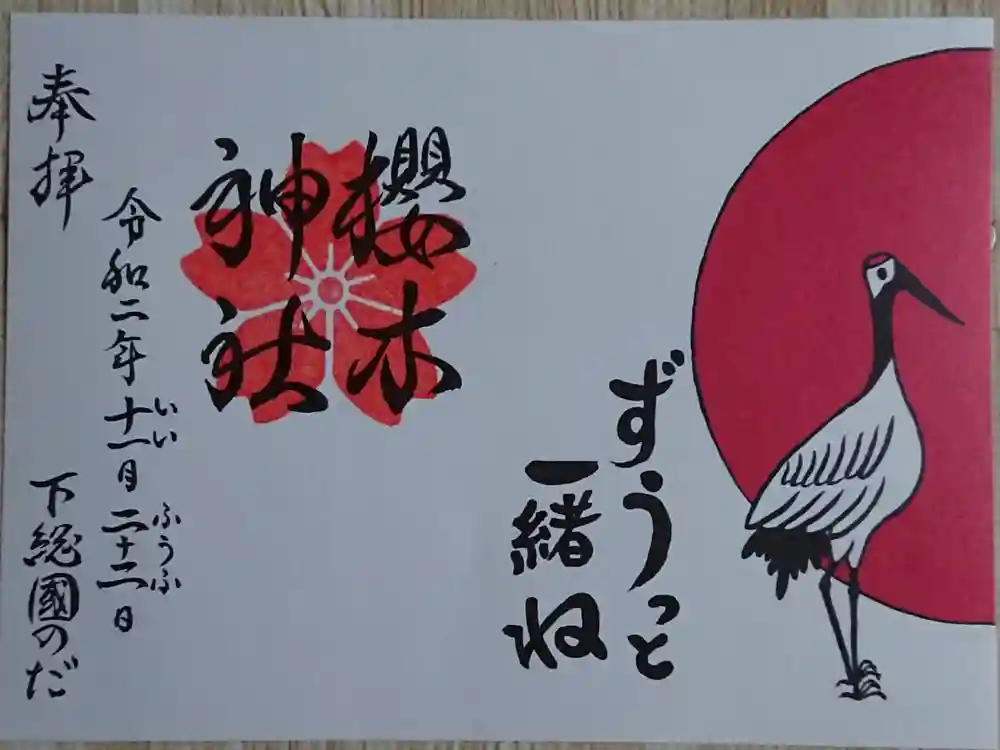 ずうっと
一緒ね
櫻木
神社
いい ふうふ
令和二年十一月二十二日
奉拝
下総國のだ